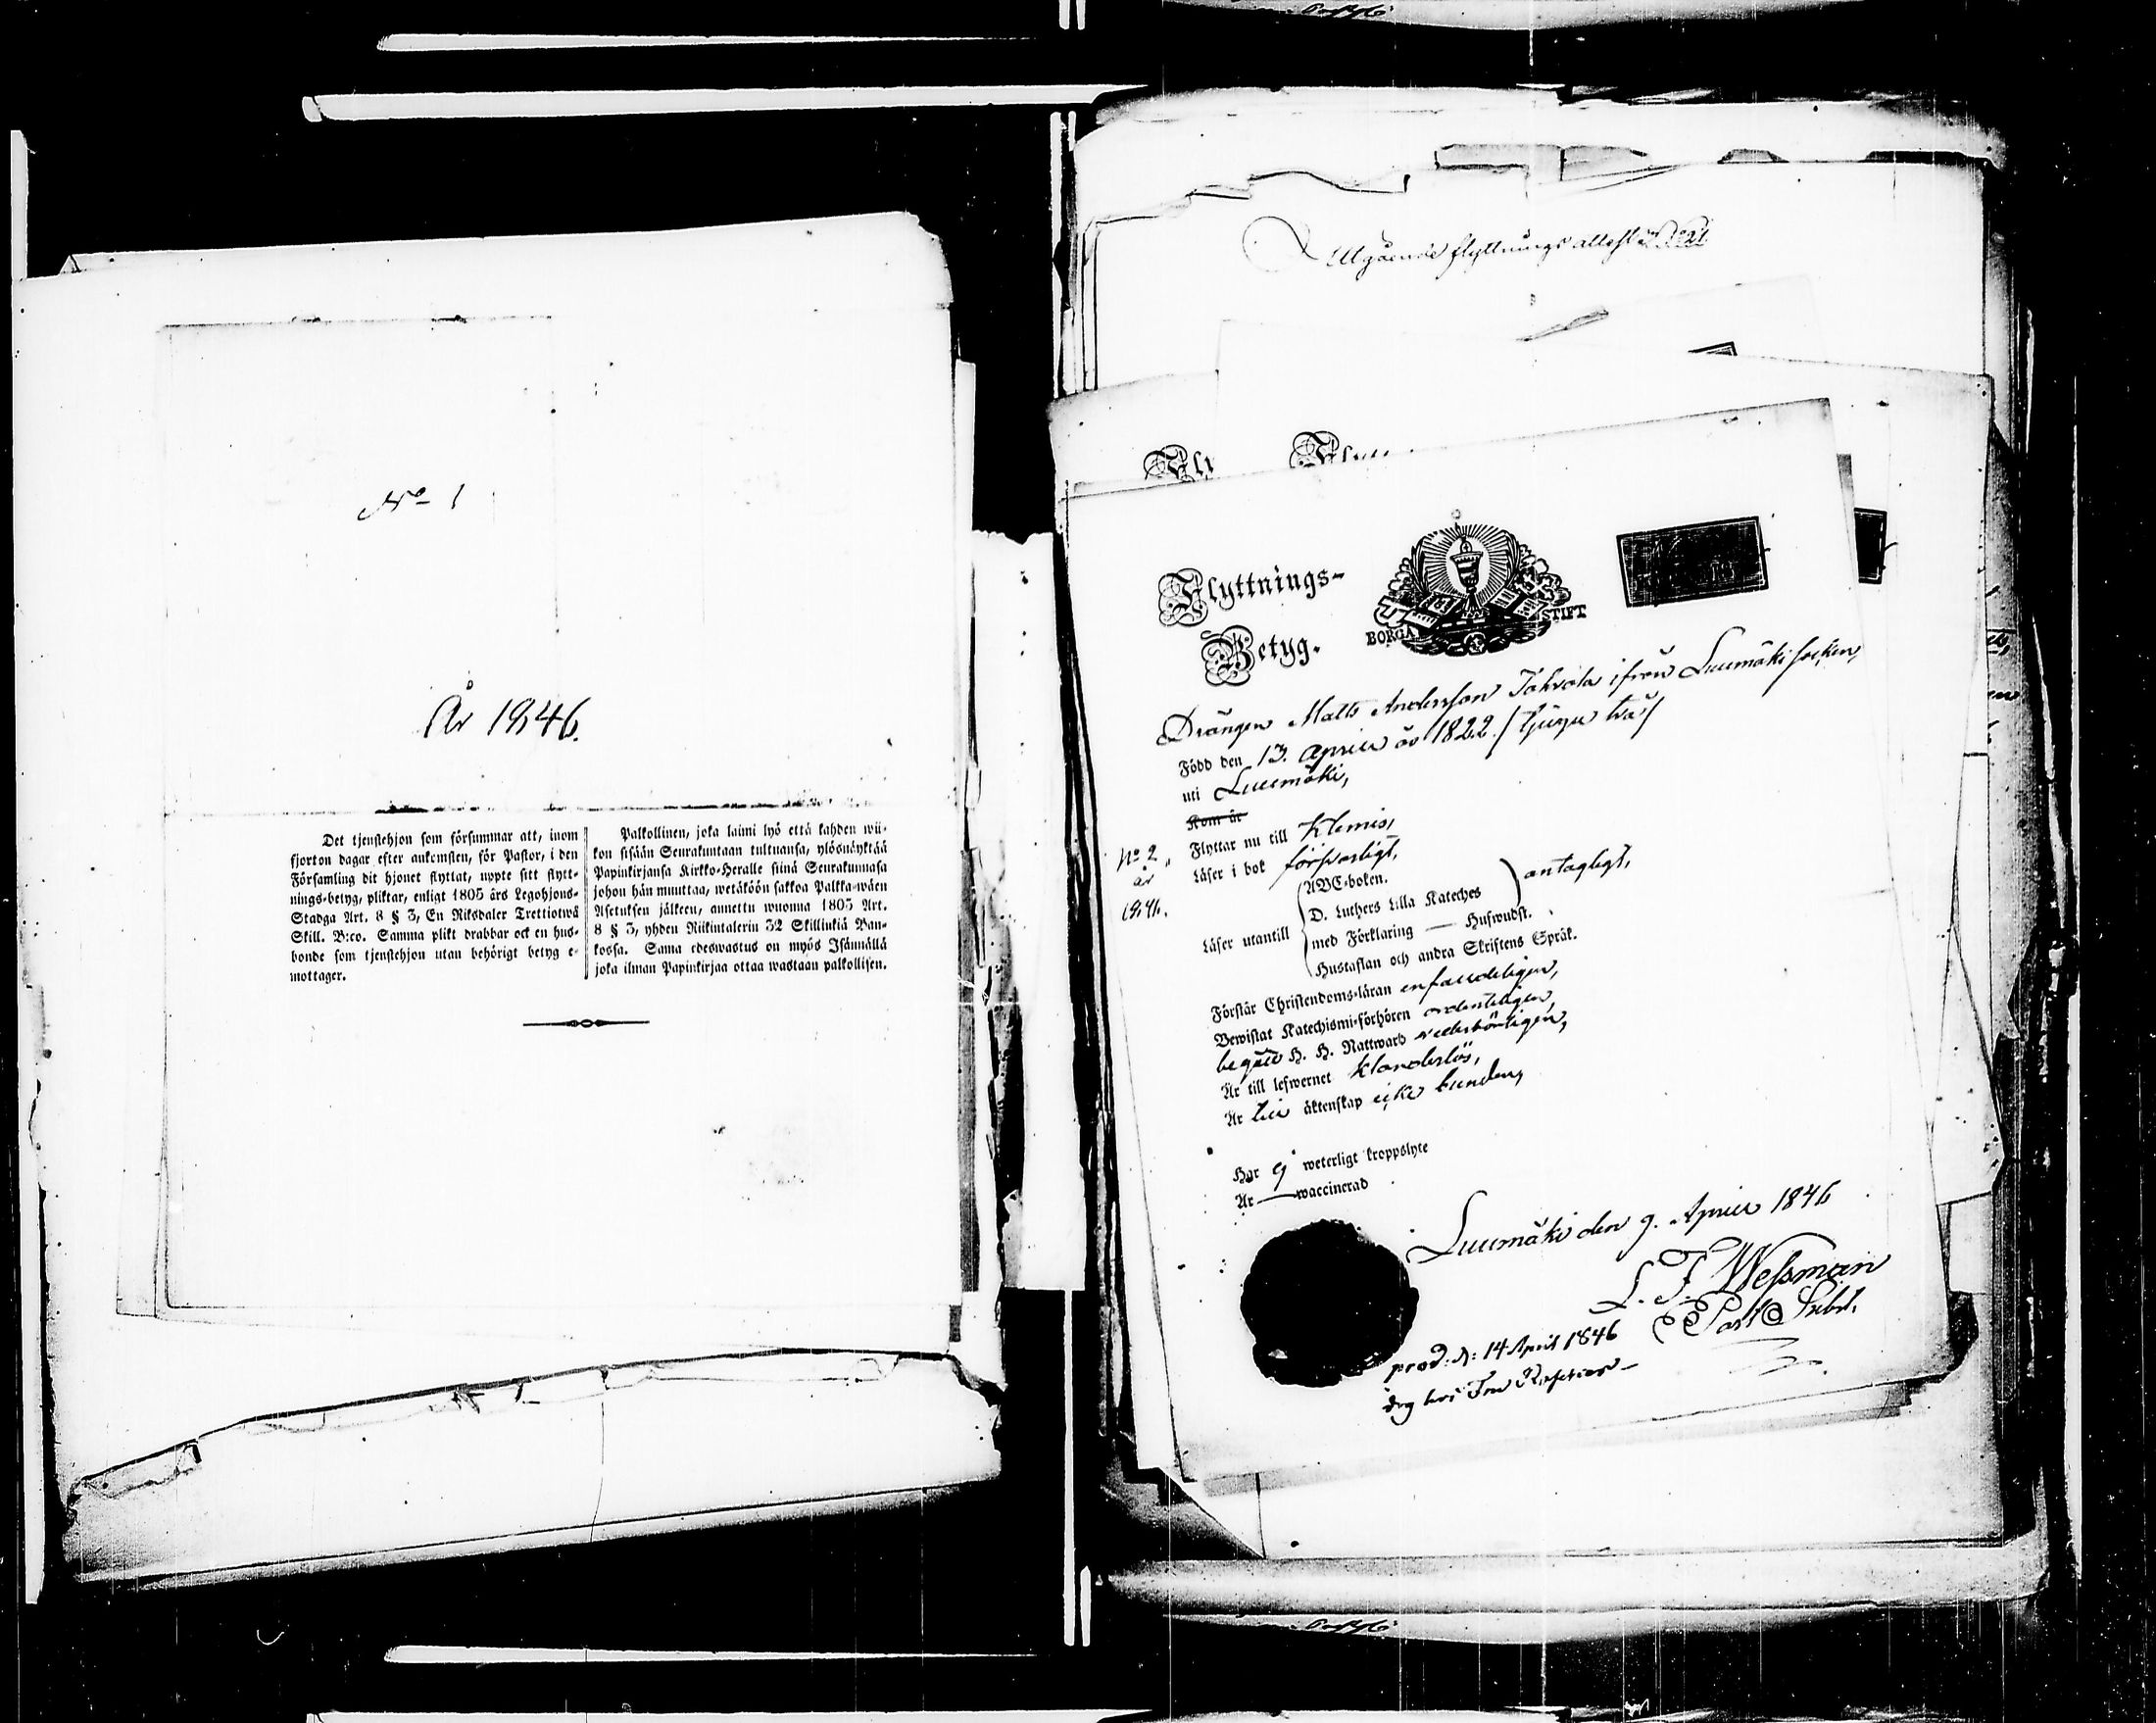 No 1
År 1846.
Det tjenstehjon som försummar att, inom
fjorton dagar efter ankomsten, för Pastor, i den
Församling dit hjonet flyttat, uppte sitt flytt-
nings-betyg, pliktar, enligt 1805 års Legohjons-
Stadga Art. 8 § 3, En Riksdaler Trettiotwå
Skill. B:co. Samma plikt drabbar ock en hus-
bonde som tjenstehjon utan behörigt betyg e-
mottager.
Palkollinen, joka laimi lyö että kahden wii-
kon sisään Seurakuntaan tultuansa, ylösnäyktää
Papinkirjansa Kirkko-Heralle siinä Seurakunnasa
johon hän muuttaa, wetäköön sakkoa Palkka-wäen
Asetuksen jälkeen, annettu wuonna 1805 Art.
8 § 3, yhden Riikintalerin 32 Skillinkiä Ban-
kossa. Sama edeswastus on myös Isännällä
joka ilman Papinkirjaa ottaa wastaan palkollisen.
Utgående flyttnings attester
Fly Flytt
Flyttnings-
Betyg.
BORGÅ STIFT
Drängen Matts Andersson Tahvola ifrån Luumäki socken,
Född den 13. April år 1822. / tjugu två /
uti Luumäki,
Kom år
Flyttar nu till Klemis,
No 2
år
1846.
Läser i bok försvarligt,
Läser utantill
ABC-boken.
D. Luthers Lilla Kateches
med Förklaring — Huswudst.
Hustaflan och andra Skriftens Språk.
antagligt,
Förstår Christendoms-läran enfaldeligen,
Bewistat Katechismi-förhören ordenteligen,
begått H. H. Nattward vederbörligen,
Är till lefwernet klanderlös,
Är till äktenskap icke bunden,
Har ej weterligt kroppslyte
Är — waccinerad
Luumäki den 9. April 1846
L. F. Wessman
Past. Subst.
prod: d: 14 April 1846